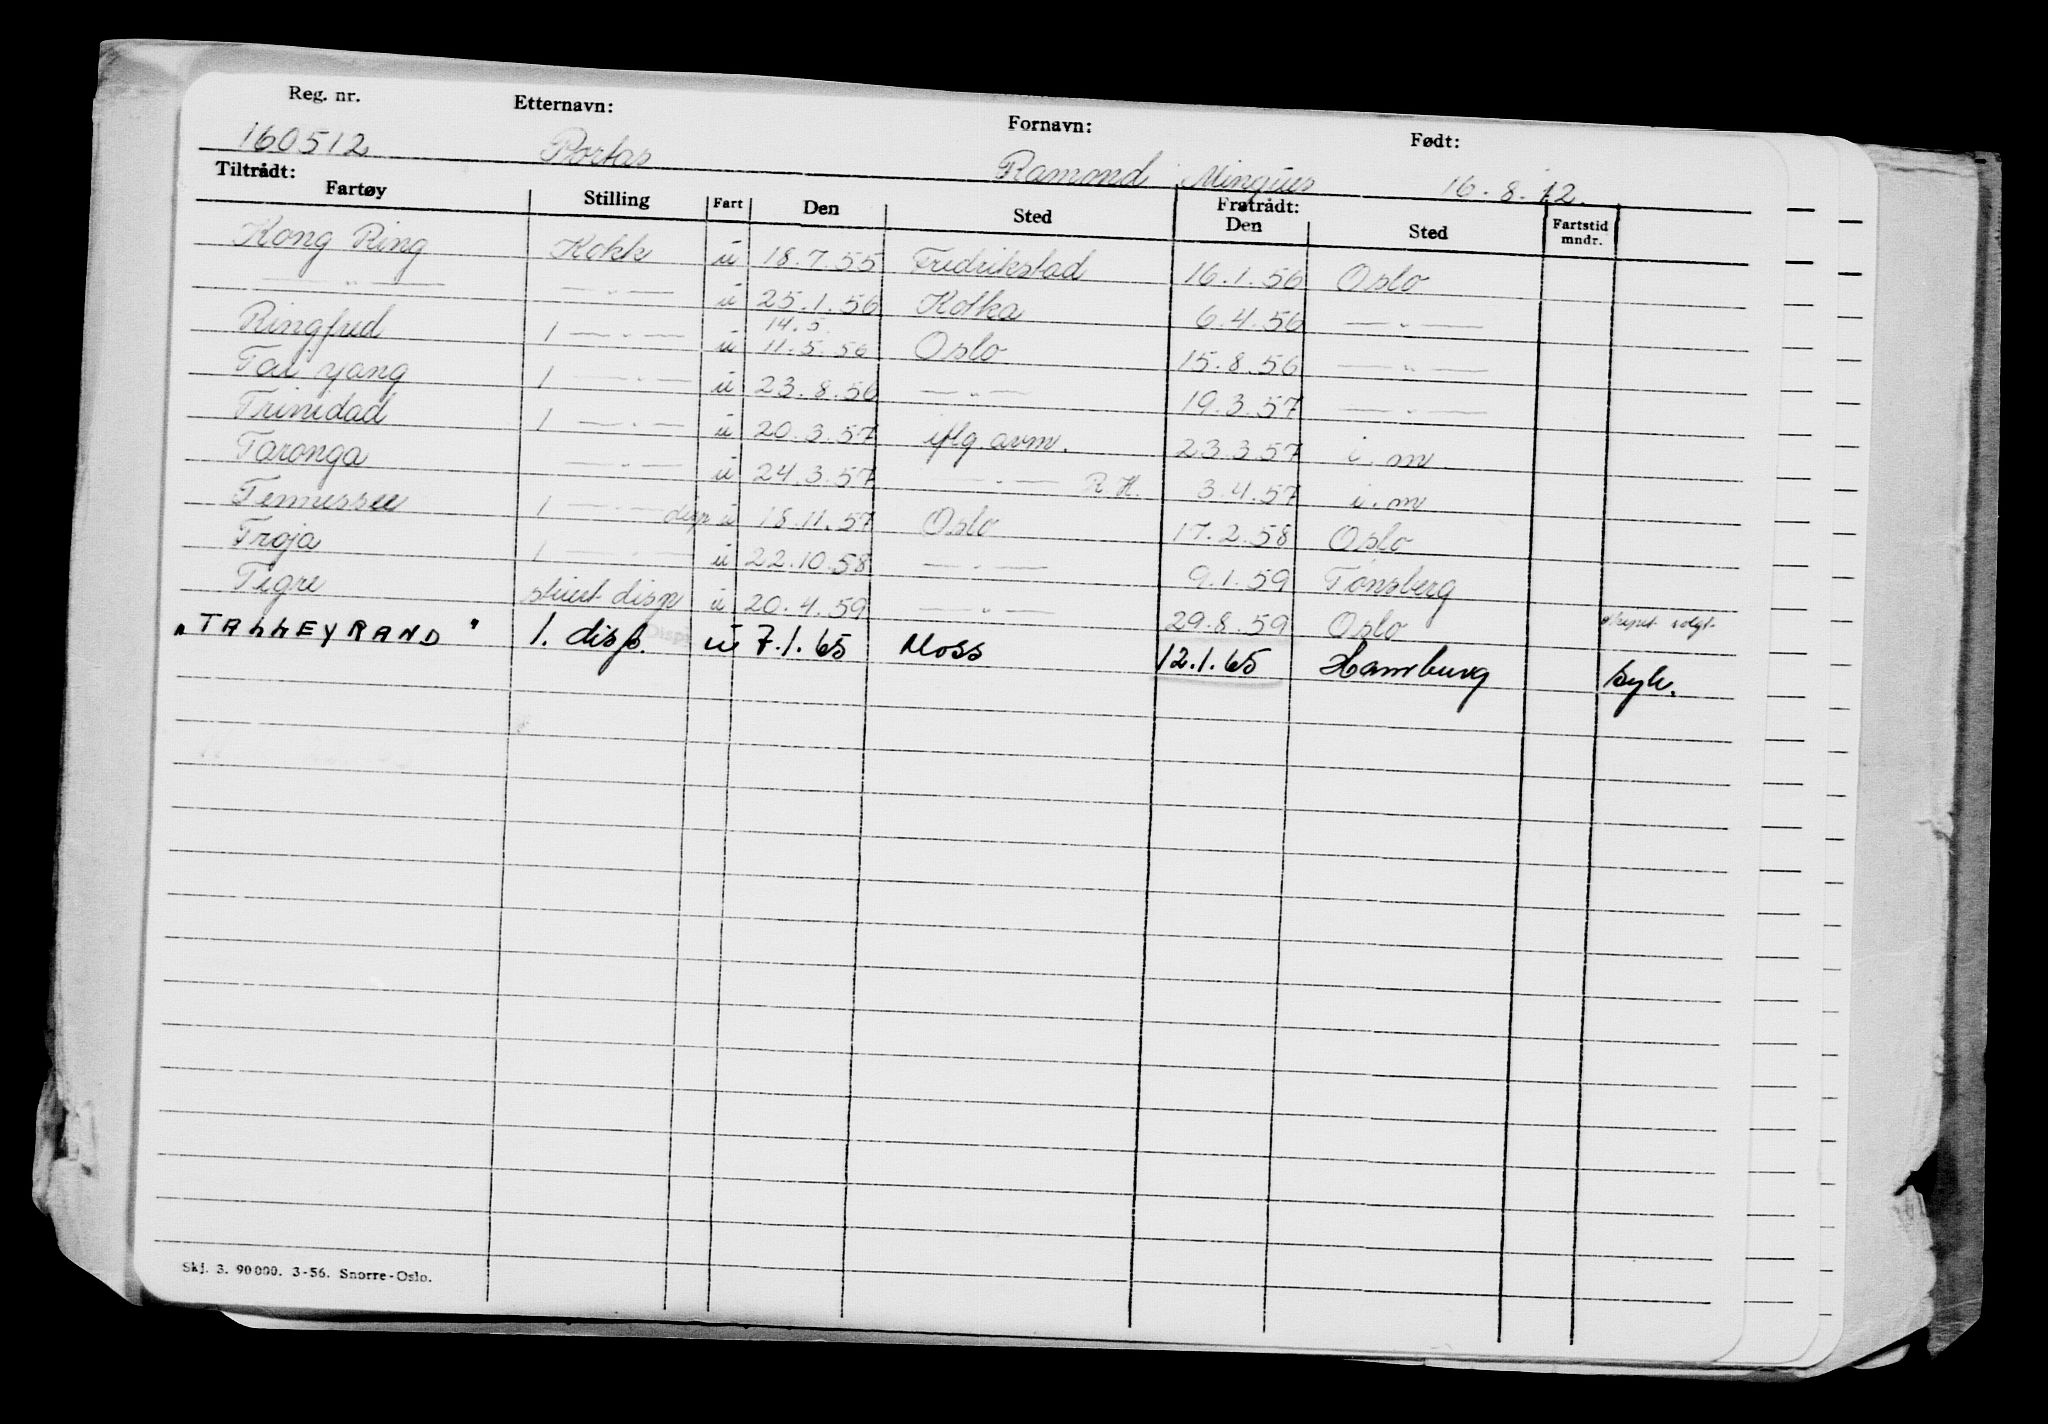 Reg. nr. Etternavn: Fornavn: Født:
160512 Portas Ramond Mingues 16.8.12.
Tiltrådt: Fratrådt:
Fartøy Stilling Fart Den Sted Den Sted Fartstid mndr.
Kong Ring Kokk u 18.7.55 Fredrikstad 16.1.56 Oslo
— " — — " — u 25.1.56 Kotka 6.4.56 — " —
14.5.
Ringfred 1 — " — u 11.5.56 Oslo 15.8.56 — " —
Tai yang 1 — " — u 23.8.56 — " — 19.3.57 — " —
Trinidad 1 — " — u 20.3.57 iflg avm. 23.3.57 i.m
Taronga — " — u 24.3.57 — " — R.H. 3.4.57 i.m
Tennessee 1 — " — disp u 18.11.57 Oslo 17.2.58 Oslo
Troja 1 — " — u 22.10.58 — " — 9.1.59 Tønsberg
Tigre stuert disp u 20.4.59 — " — 29.8.59 Oslo skipet solgt
"TALLEYRAND" 1. disp. u 7.1.65 Moss 12.1.65 Hamburg syk.
Skj. 3. 90 000. 3-56. Snorre-Oslo.